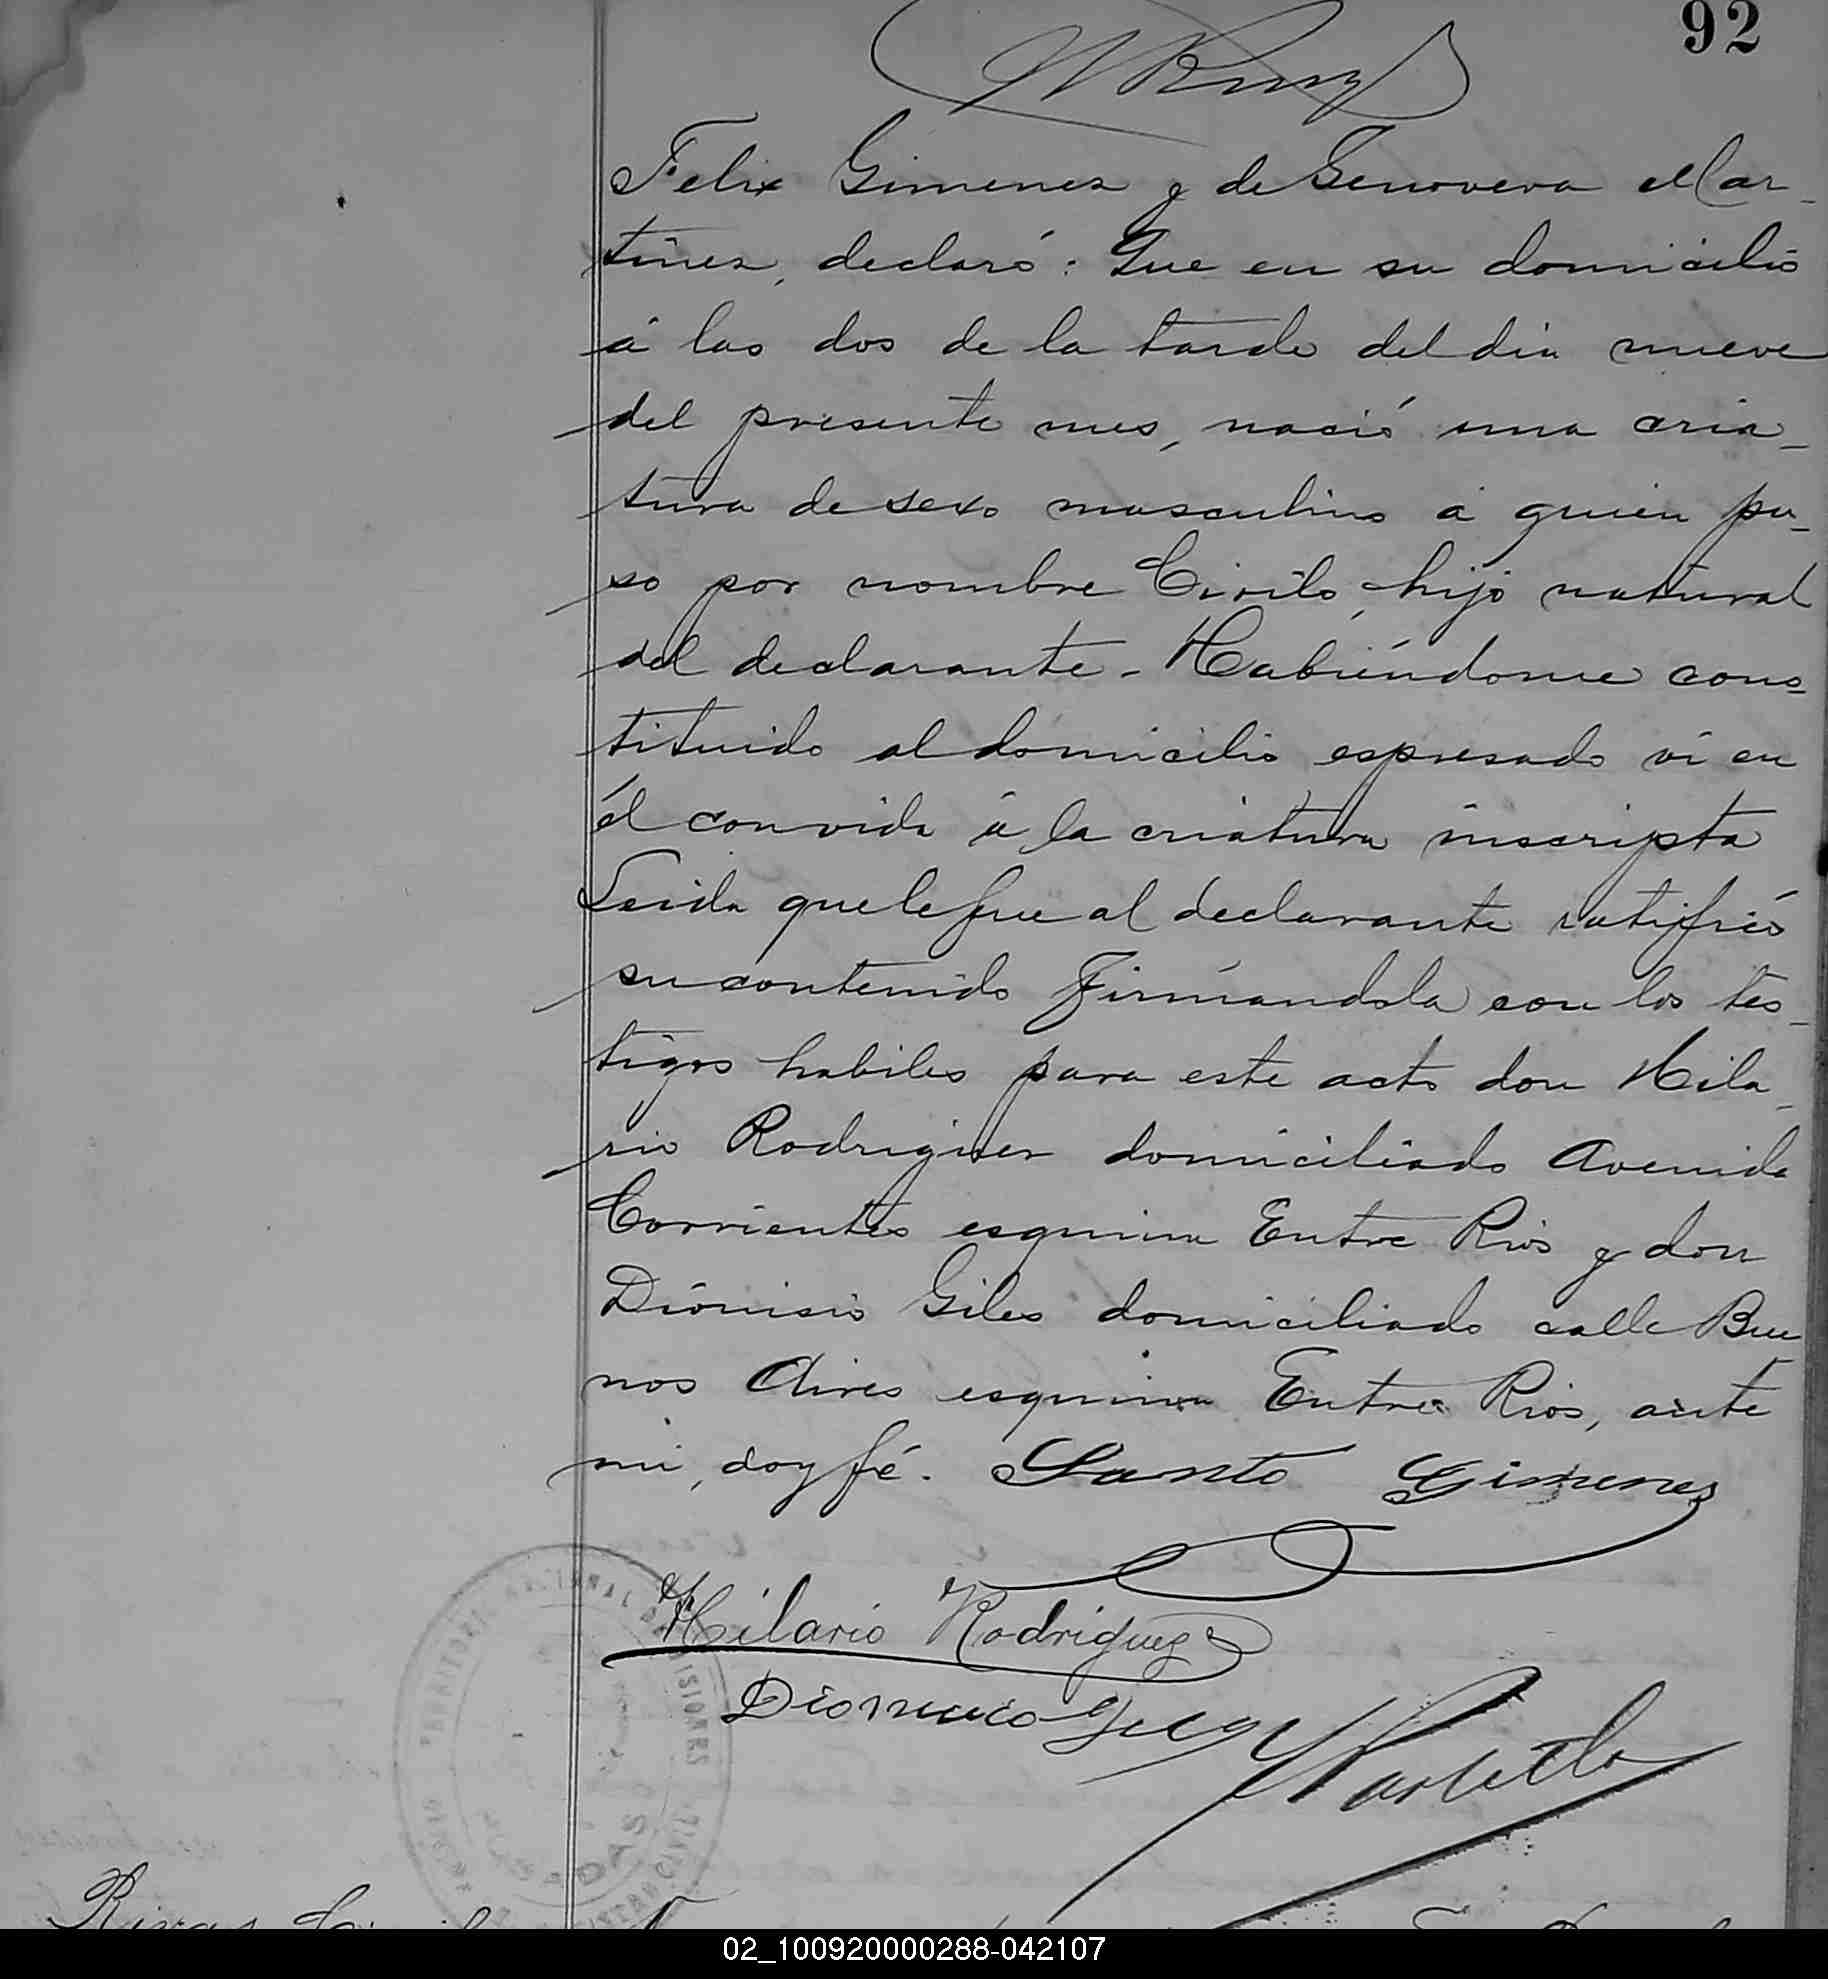 92
Felix Gimenez y de Genoveva Mar-
tinez, declaró: Que en su domicilio
á las dos de la tarde del dia nueve
del presente mes, nació una cria-
tura de sexo masculino á quien pu-
so por nombre Cirilo, hijo natural
del declarante. Habiéndome cons-
tituido al domicilio espresado ví en
él con vida á la criatura inscripta
Leida que le fue al declarante ratificó
su contenido firmándola con los tes-
tigos habiles para este acto don Hila-
rio Rodriguez domiciliado Avenida
Corrientes esquina Entre Rios y don
Dionisio Giles domiciliado calle Bue
nos Aires esquina Entre Rios, ante
mi, doy fé. Santo Gimenez
Hilario Rodriguez
Dionicio
MISIONES
POSADAS
CIVIL
Rivas
02_100920000288-042107